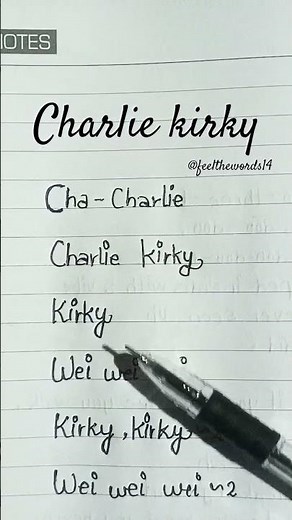 NOTES
Charlie kirky
@feelthewords14
Cha - Charlie
Charlie kirky
Kirky
Wei wei
Kirky, kirky
Wei wei wei ~2